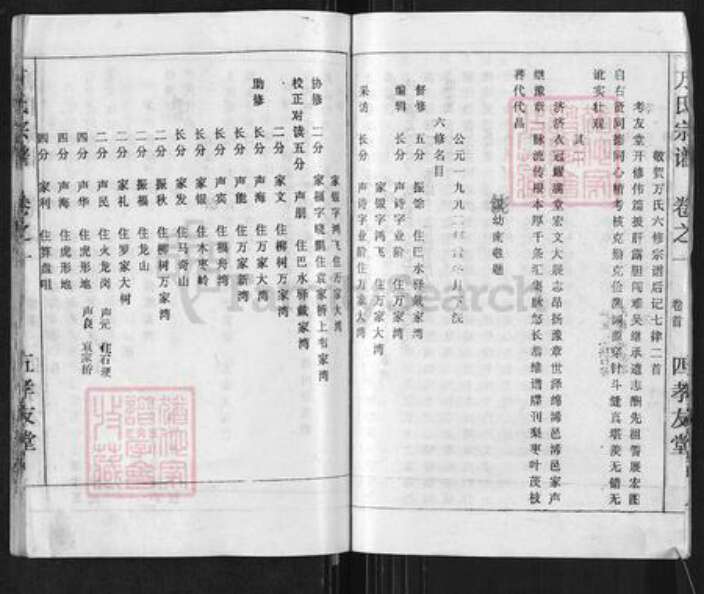 万氏宗谱 卷之一 卷首 四 孝友堂
敬贺万氏六修宗谱后记七律二首
考友堂开修伟篇披肝露胆闯难关继承遗志酬先祖誓展宏图
启右贤同德同心精考核克勤克俭
针斗缝真堪羡无错无
讹实壮观
其二
济济衣冠耀满堂宏文大展志昂扬豫章世泽绵浠邑浠邑家声
继豫章一脉流传根本厚千条汇集脉悠长恭维谱牒刊梨枣叶茂枝
荣代代昌
幼南敬题
公元一九九二年
六修名目
督修 五分 振馀 住巴水驿戴家湾
编辑 长分 声诗字业阶 住万家湾
家银字鸿飞 住万家大湾
采访 长分 声诗字业阶住万家大湾
家银字鸿飞住万家大湾
协修 二分 家福字晓鹏住袁家桥上布家湾
校正对读五分 声朋 住巴水驿戴家湾
二分 家文 住柳树万家湾
助修 长分 声海 住万家大湾
长分 声能 住万家新湾
长分 声宾 住福舟湾
长分 家银 住木枣岭
长分 家发 住马奇山
二分 振秋 住柳树万家湾
二分 振福 住龙山
二分 家礼 住罗家大树
二分 声民 住火龙岗 声元 住石硬
四分 声华 住虎形地 声良 袁家桥
四分 声海 住虎形地
四分 家利 住算盘咀
五 孝友堂